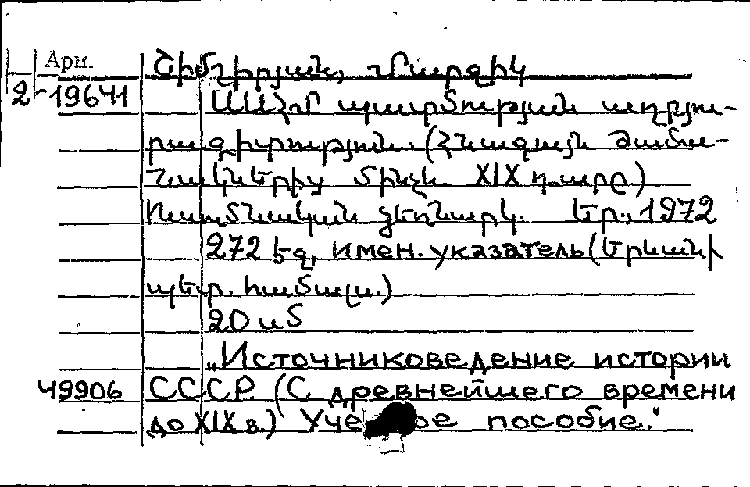 Арм.
2-19641
Շիմշիրյան,
ՍՍՀՄ պատմության աղբյու-
րագիտություն. (Հնագույն ժամա-
նակներից մինչև XIX դարը)
Ուսումնական ձեռնարկ. Եր., 1972
272 էջ, имен. указатель (Երևանի
պետ. համալս.)
20 սմ
„Источниковедение истории
49906 СССР (С древнейшего времени
до XIX в.) пособие."